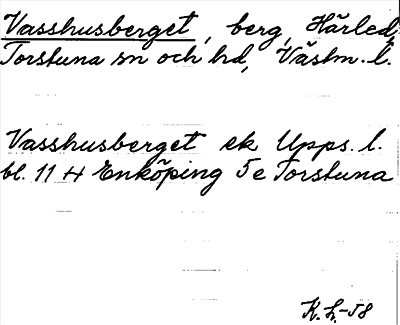 Vasshusberget, berg, Härled,
Torstuna sn och hd, Västm. l.
Vasshusberget ek Upps. l.
bl. 11 H Enköping 5e Torstuna
K.L.-58